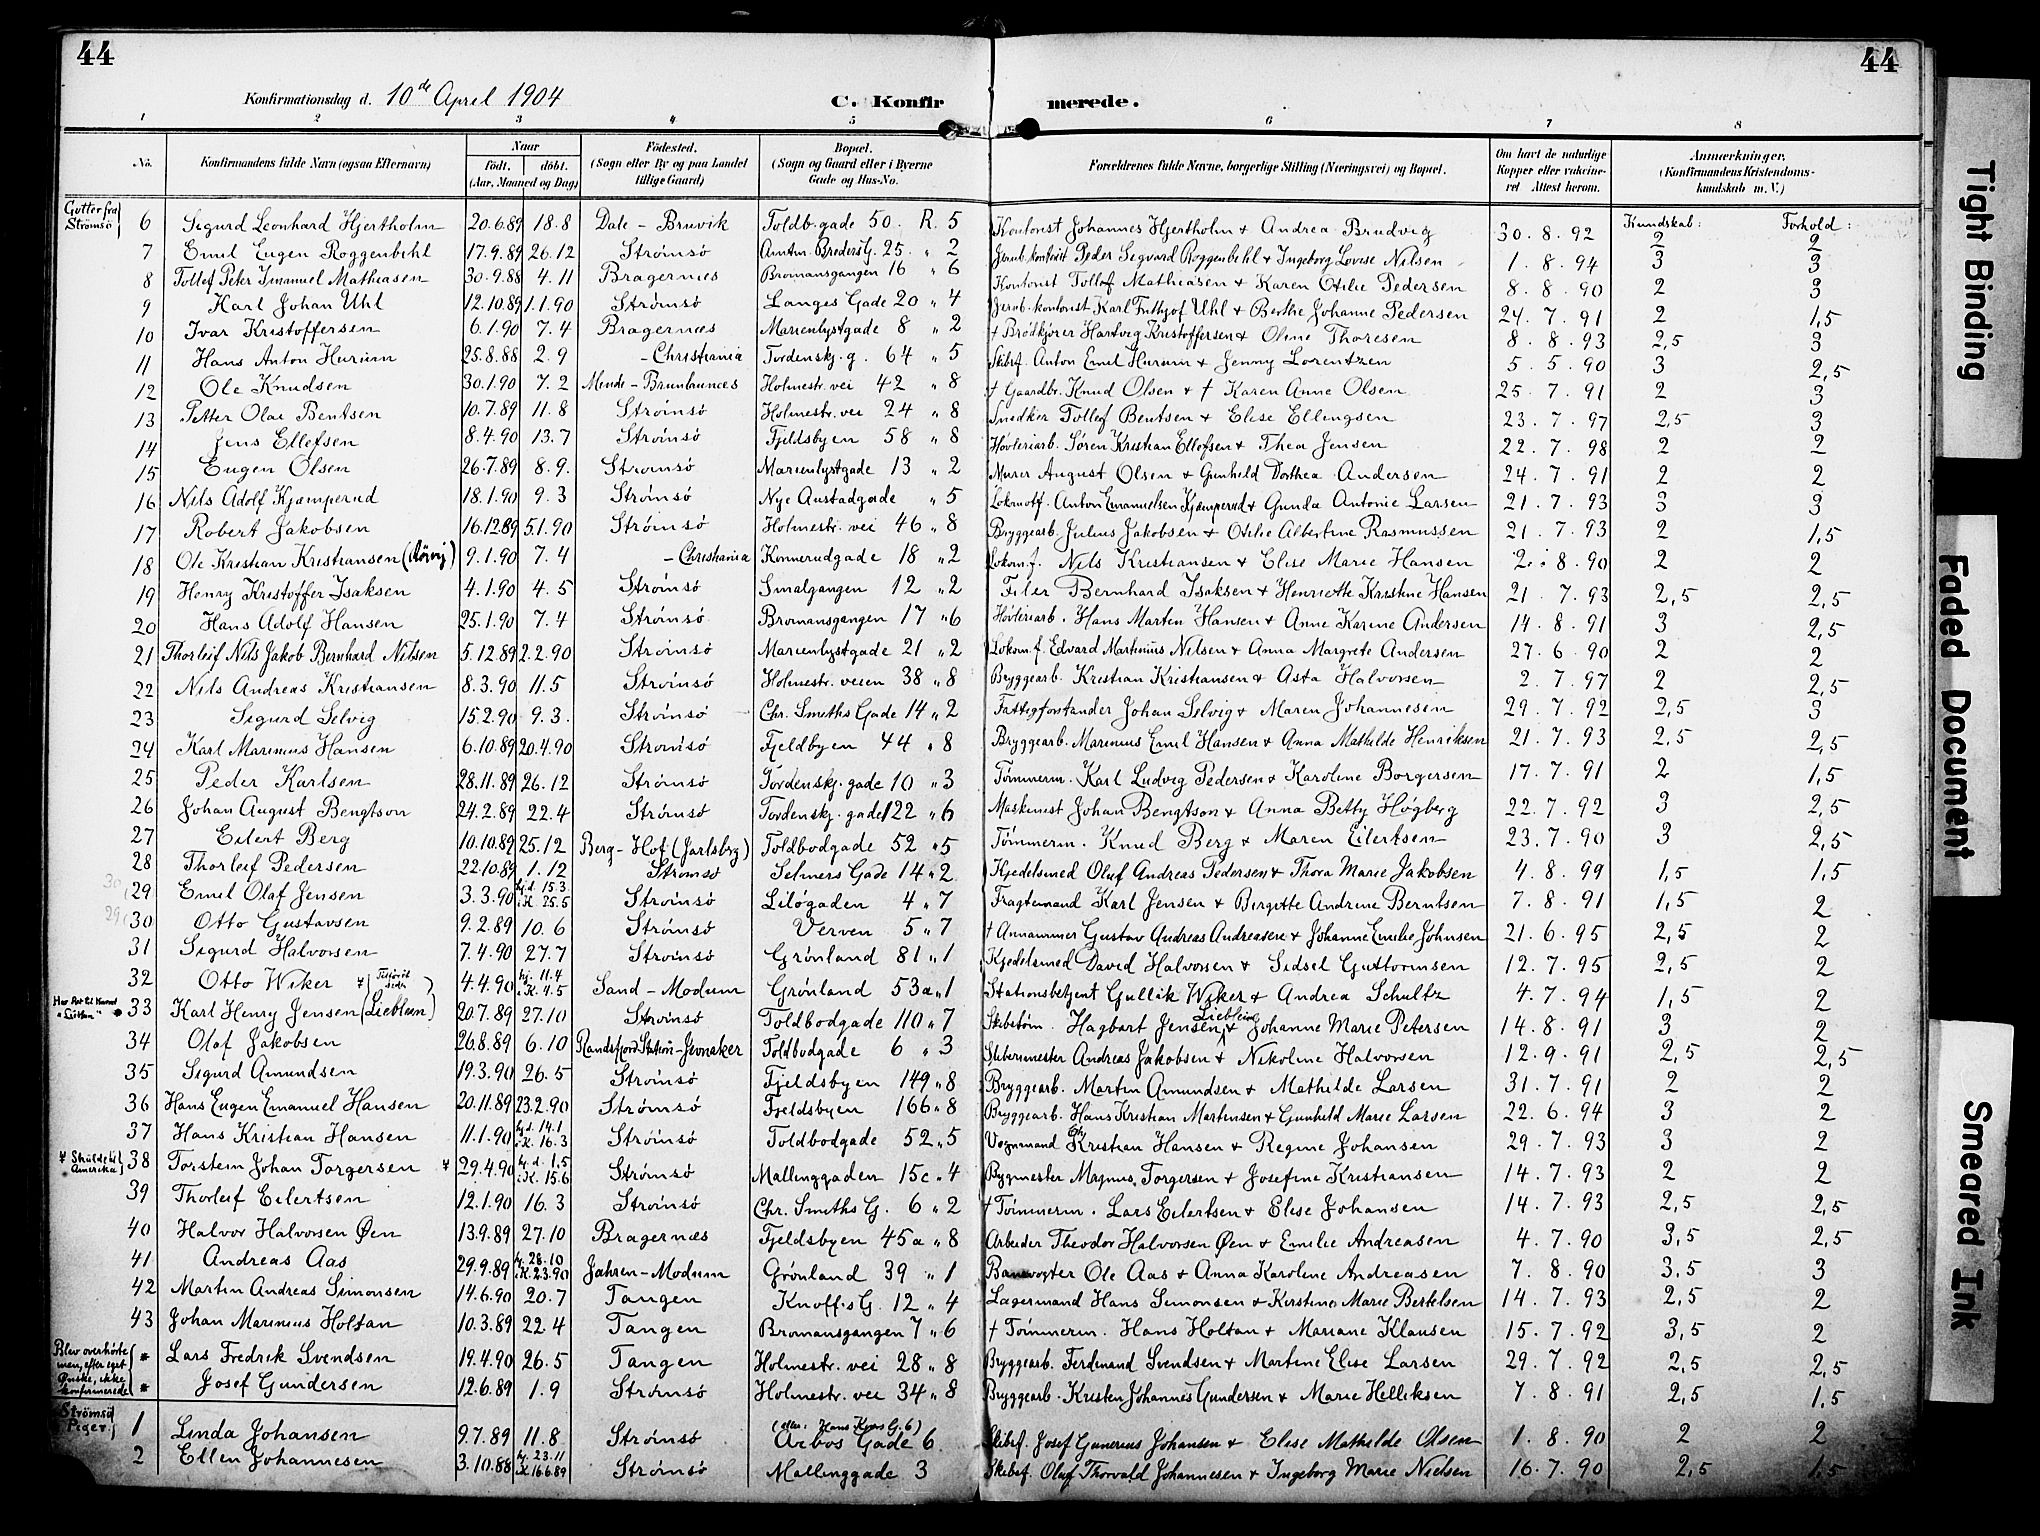 44
44
Konfirmationsdag d. 10de April 1904
C. Konfirmerede.
1 2 3 4 5 6 7 8
No. Konfirmandens fulde Navn (ogsaa Efternavn) Naar født. døbt. (Aar, Maaned og Dag) Fødested. (Sogn eller By og paa Landet tillige Gaard) Bopæl. (Sogn og Gaard eller i Byerne Gade og Hus-No. Forældrenes fulde Navne, borgerlige Stilling (Næringsvei) og Bopæl. Om havt de naturlige Kopper eller vaccineret Attest herom. Anmærkninger. (Konfirmandens Kristendomskundskab m. V.)
Gutter fra Strømsø Kundskab: Forhold:
6 Sigurd Leonhard Hjertholm 20.6.89 18.8 Dale - Bruvik Toldb.gade 50. R. 5 Kontorist Johannes Hjertholm & Andrea Brudvig 30.8.92 2 2
7 Emil Eugen Roggenbihl 17.9.89 26.12 Strømsø Amtm. Breders G. 25. " 2 Jernb.kontorist Peder Sigvard Roggenbihl & Ingeborg Lovise Nilsen 1.8.94 3 3
8 Tollef Peter Imanuel Mathiasen 30.9.88 4.11 Bragernes Bromansgangen 16 " 6 Kontorist Tollef Mathiasen & Karen Otilie Pedersen 8.8.90 2 3
9 Karl Johan Uhl 12.10.89 1.1.90 Strømsø Langes Gade 20 " 4 Jernb.kontorist Karl Frithjof Uhl & Berthe Johanne Pedersen 24.7.91 2 1,5
10 Ivar Kristoffersen 6.1.90 7.4 Bragernes Marienlystgade 8 " 2 † Brødkjører Hartvig Kristoffersen & Oline Thoresen 8.8.93 2,5 3
11 Hans Anton Hurum 25.8.88 2.9 - Christiania Tordenskj.g. 64 " 5 Skibsf. Anton Emil Hurum & Jenny Lorentzen 5.5.90 3 2,5
12 Ole Knudsen 30.1.90 7.2 Holmestr. vei 42 " 8 † Gaardbr. Knud Olsen & † Karen Anne Olsen 25.7.91 2 3
13 Petter Olai Bentsen 10.7.89 11.8 Strømsø Holmestr. vei 24 " 8 Snedker Tollef Bentsen & Elise Ellingsen 23.7.97 2,5 3
14 Jens Ellefsen 8.4.90 13.7 Strømsø Fjeldsbyen 58 " 8 Høvleriarb. Søren Kristian Ellefsen & Thea Jensen 22.7.98 2 2
15 Eugen Olsen 26.7.89 8.9. Strømsø Marienlystgade 13 " 2 Murer August Olsen & Gunhild Dorthea Andersen 24.7.91 2 2
16 Nils Adolf Kjæmperud 18.1.90 9.3 Strømsø Nye Austadgade " 5 Lokomotf. Anton Emanuelsen Kjæmperud & Gunda Antonie Larsen 21.7.93 3 3
17 Robert Jakobsen 16.12.89 5.1.90 Strømsø Holmestr. vei 46 " 8 Bryggearb. Julius Jakobsen & Otilie Albertine Rasmussen 21.7.93 2 1,5
18 Ole Kristian Kristiansen 9.1.90 7.4 - Christiania Konnerudgade 18 " 2 Lokom.f. Nils Kristiansen & Elise Marie Hansen 2.8.90 2 2
19 Henry Kristoffer Isaksen 4.1.90 4.5 Strømsø Smalgangen 12 " 2 Filer Bernhard Isaksen & Henriette Kristine Hansen 21.7.93 2,5 2,5
20 Hans Adolf Hansen 25.1.90 7.4 Strømsø Bromansgangen 17 " 6 Høvleriarb. Hans Martin Hansen & Anne Karine Andersen 14.8.91 3 2,5
21 Thorleif Nils Jakob Bernhard Nilsen 5.12.89 2.2.90 Strømsø Marienlystgade 21 " 2 Lokom.f. Edvard Martinius Nilsen & Anna Margrete Andersen 27.6.90 2 2
22 Nils Andreas Kristiansen 8.3.90 11.5 Strømsø Holmestr. veien 38 " 8 Bryggearb. Kristian Kristiansen & Asta Halvorsen 2.7.97 2 2,5
23 Sigurd Selvig 15.2.90 9.3. Strømsø Chr. Smiths Gade 14 " 2 Fattigforstander Johan Selvig & Maren Johannesen 29.7.92 2,5 3
24 Karl Marinius Hansen 6.10.89 20.4.90 Strømsø Fjeldbyen 44 " 8 Bryggearb. Marinius Emil Hansen & Anna Mathilde Henriksen 21.7.93 2,5 2,5
25 Peder Karlsen 28.11.89 26.12 Strømsø Tordenskj. gade 10 " 3 Tømmerm. Karl Ludvig Pedersen & Karoline Borgersen 17.7.91 2 1,5
26 Johan August Bengtson 24.2.89 22.4 Strømsø Tordenskj. gade 122 " 6 Maskinist Johan Bengtson & Anna Betty Høgberg 22.7.92 3 2,5
27 Eilert Berg 10.10.89 25.12 Berg - Hof (Jarlsberg) Toldbodgade 52 " 5 Tømmerm. Knud Berg & Maren Eilertsen 23.7.90 3 2,5
28 Thorleif Pedersen 22.10.89 1.12 Strømsø Selmers Gade 14 " 2 Kjedelsmed Oluf Andreas Pedersen & Thora Marie Jakobsen 4.8.99 1,5 1,5
30 29 Emil Olaf Jensen 3.3.90 hj.d. 15.3 i K. 25.5 Strømsø Liløgaden 4 " 7 Fragtemand Karl Jensen & Birgitte Andrine Berntsen 7.8.91 1,5 2
29 30 Otto Gustavsen 9.2.89 10.6 Strømsø Verven 5 " 7 † Gustav Andreas Andreasen & Johanne Emilie Johnsen 21.6.95 2,5 2
31 Sigurd Halvorsen 7.4.90 27.7 Strømsø Grønland 81 " 1 Kjedelsmed David Halvorsen & Sidsel Guttormsen 12.7.95 2,5 2
32 Otto Wiker 4.4.90 hj. 11.4 i K. 4.5 Sand - Modum Grønland 53a " 1 Stationsbetjent Gullik Wiker & Andrea Schultz 4.7.94 1,5 2
33 Karl Henry Jensen (Lieblein) 20.7.89 27.10 Strømsø Toldbodgade 110 " 7 Skibstøm. Hagbart Jensen Lieblein & Johanne Marie Petersen 14.8.91 3 2
34 Olaf Jakobsen 26.8.89 6.10 Randsfjord Station - Jevnaker Toldbodgade 6 " 3 Stuermester Andreas Jakobsen & Nikoline Halvorsen 12.9.91 2,5 2,5
35 Sigurd Amundsen 19.3.90 26.5 Strømsø Fjeldsbyen 149 " 8 Bryggearb. Martin Amundsen & Mathilde Larsen 31.7.91 2 2
36 Hans Eugen Emanuel Hansen 20.11.89 23.2.90 Strømsø Fjeldsbyen 166 " 8 Bryggearb. Hans Kristian Martinsen & Gunhild Marie Larsen 22.6.94 3 2
37 Hans Kristian Hansen 11.1.90 hj.d. 14.1 i K. 16.3 Strømsø Toldbodgade 52 " 5 Vognmand Kristian Hansen & Regine Johansen 29.7.93 3 2
Amerika 38 Torstein Johan Torgersen 29.4.90 hj.d. 1.5 i K. 15.6 Strømsø Mallinggaden 15c " 4 Bygmester Magnus Torgersen & Josefine Kristiansen 14.7.93 2 2
39 Thorleif Eilertsen 12.1.90 16.3 Strømsø Chr. Smiths G. 6 " 2 † Tømmerm. Lars Eilertsen & Elise Johansen 14.7.93 2,5 2,5
40 Halvor Halvorsen Øen 13.9.89 27.10 Bragernes Fjeldsbyen 45a " 8 Arbeider Theodor Halvorsen Øen & Emilie Andreasen 4.7.90 3,5 2,5
41 Andreas Aas 29.9.89 hj. 28.10 i K. 2.3.90 Jahren - Modum Grønland 39 " 1 Banevogter Ole Aas & Anna Karoline Andreasen 7.8.90 3,5 3
42 Martin Andreas Simonsen 14.6.90 20.7 Tangen Knoffs G. 12 " 4 Lagermand Hans Simonsen & Kirstine Marie Bertelsen 14.7.93 2,5 2
43 Johan Marinius Holtan 10.3.89 22.4 Tangen Bromansgangen 7 " 6 † Tømmerm. Hans Holtan & Mariane Klausen 15.7.92 3,5 2
Blev overhørte men, efter eget Ønske, ikke konfirmerede
* Lars Fredrik Svendsen 19.4.90 26.5 Tangen Holmestr. vei 28 " 8 Bryggearb. Ferdinand Svendsen & Martine Elise Larsen 29.7.92 2,5 2,5
* Josef Gundersen 12.6.89 1.9 Strømsø Holmestr. vei 34 " 8 Bryggearb. Kristen Johannes Gundersen & Marie Helliksen 7.8.91 2,5 1,5
Strømsø Piger
1 Linda Johansen 9.7.89 11.8 Strømsø Arbos Gade 6 Skibsf. Josef Gunerius Johansen & Elise Mathilde Olsen 1.8.90 2 2
2 Ellen Johannesen 3.10.88 hj. 23.11 i K. 16.6.89 Strømsø Mallinggade 3 Skibsf. Oluf Thorvald Johannesen & Ingeborg Marie Nielsen 16.7.90 2,5 1,5
Tight Binding
Faded Document
Smeared Ink